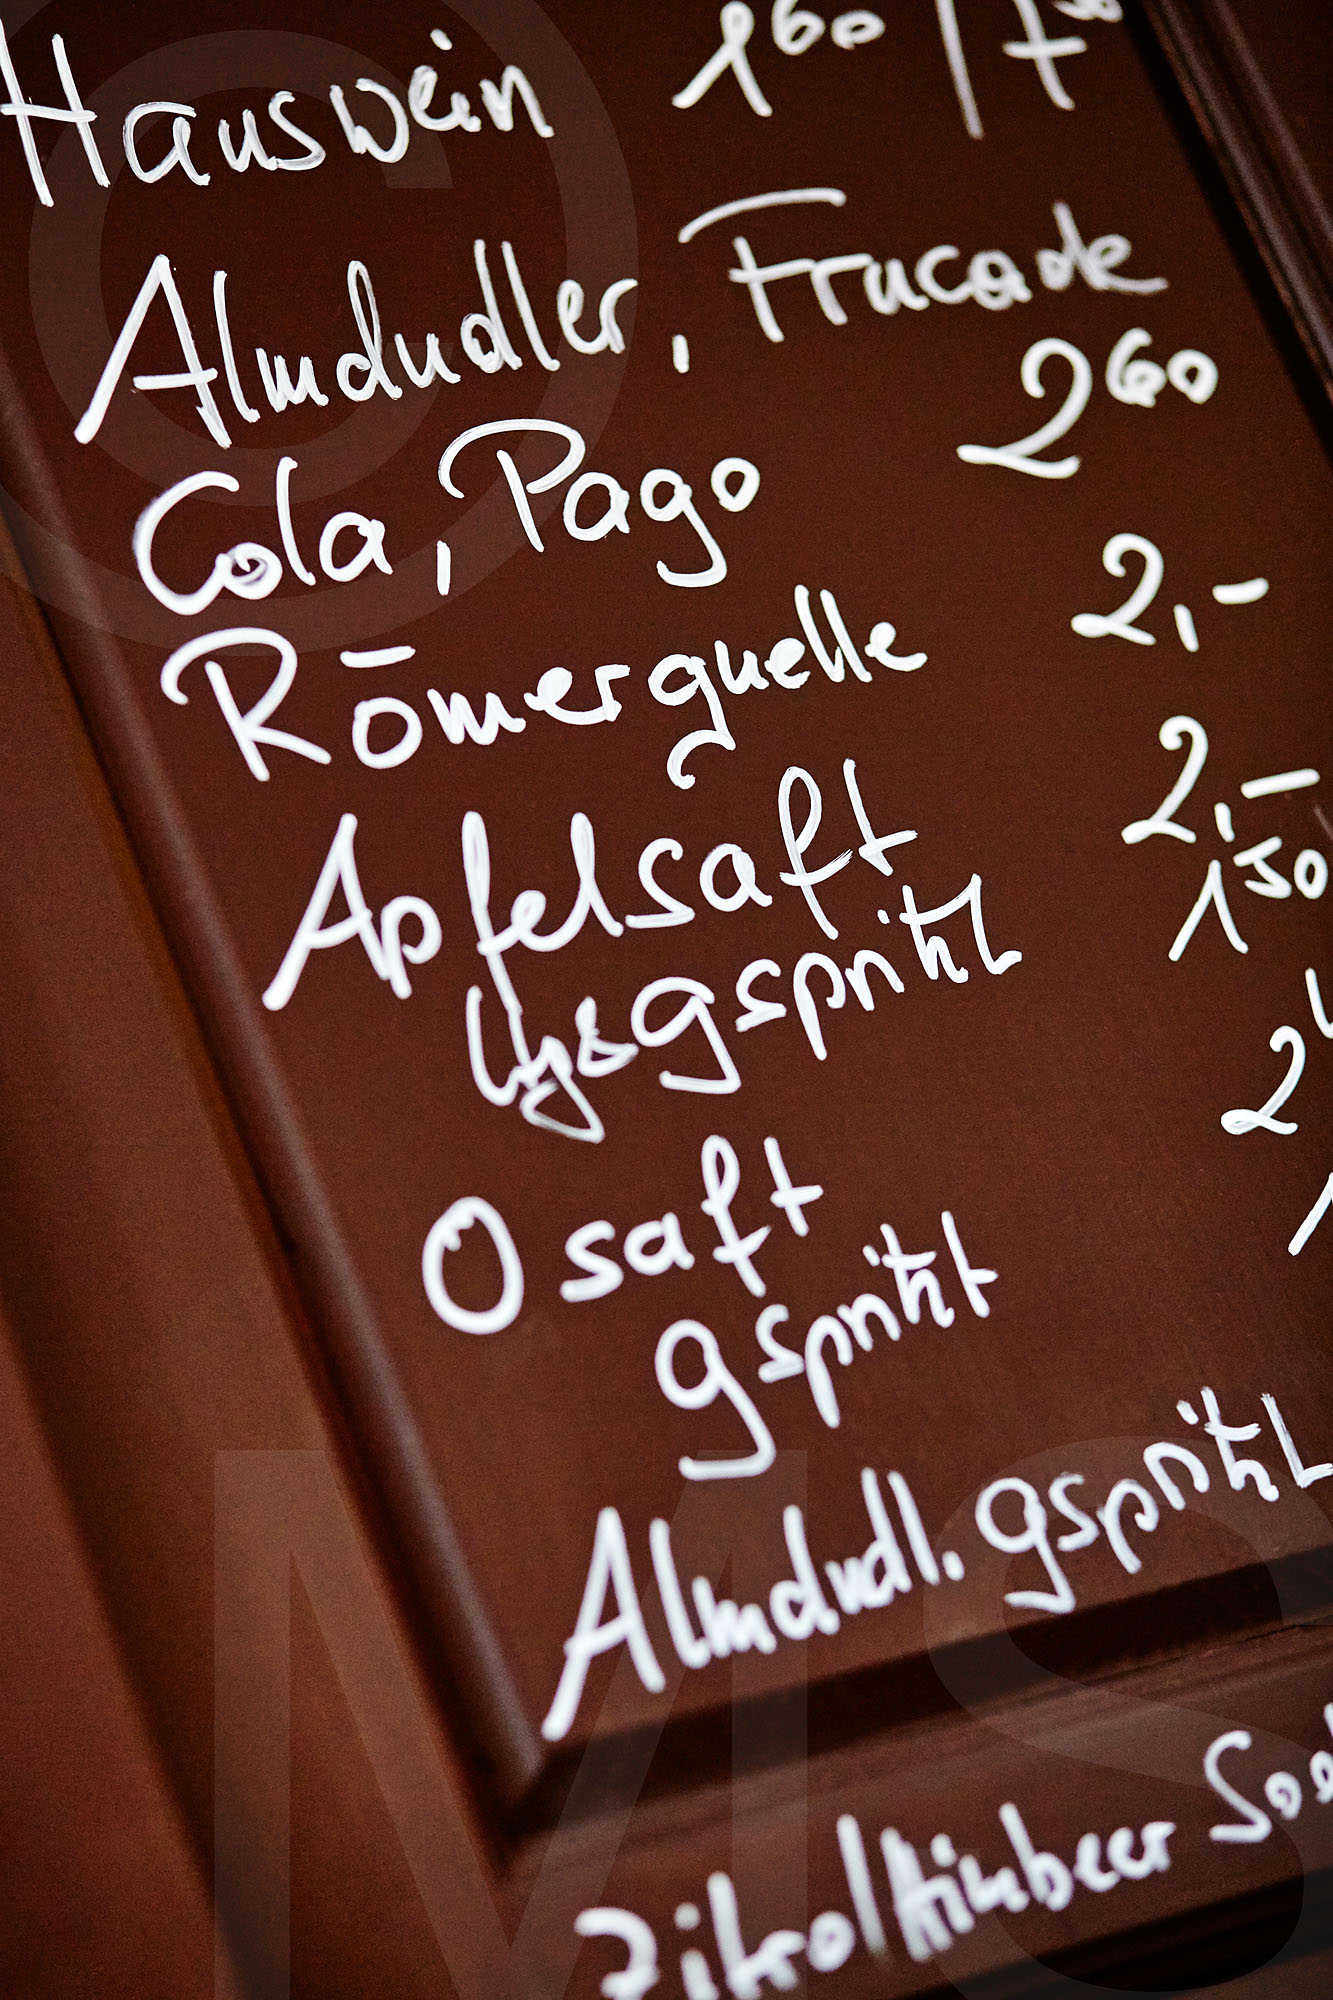 Hauswein 1 60 / 7
Almdudler, Frucade
Cola, Pago 2 60
Römerquelle 2,-
Apfelsaft 2,-
gspritzt 1 50
O saft 2
gspritzt 1
Almdudl. gspritzt
Zitro/Himbeer
© MS